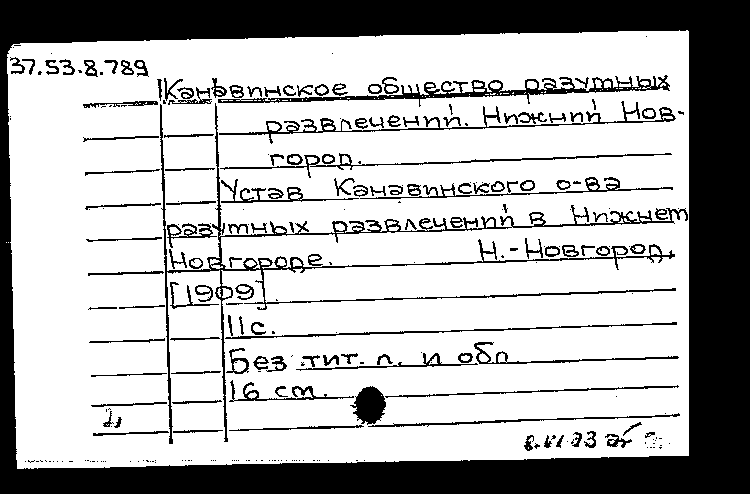 37.53.8.789
Канавинское общество разумных
развлечений. Нижний Нов-
город.
Устав Канавинского о-ва
разумных развлечений в Нижнем
Новгороде. Н.-Новгород,
[1909]
11с.
Без тит. л. и обл.
16 cm.